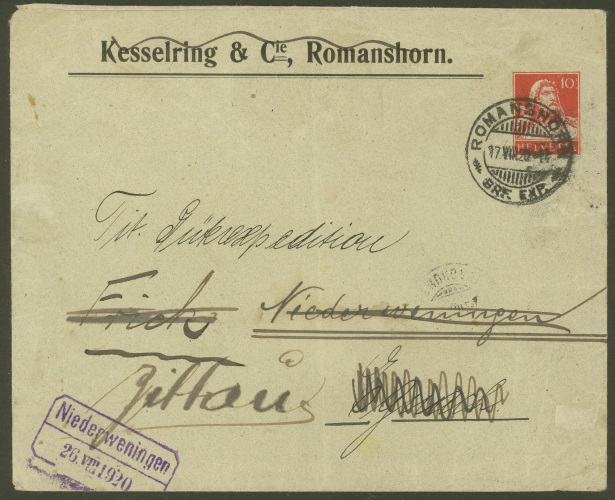 Kesselring & Cie, Romanshorn.
10
HELVETIA
ROMANSHORN
17.VIII.20
BRF. EXP.
Tit. Güterexpedition
Frick Niederweningen
Zittau
Niederweningen
26.VIII 1920